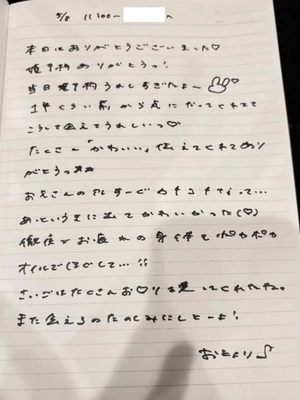 5/8 11:00〜 へ
本日はありがとうございました♡
姫予約ありがとうっ!
当日姫予約うれしすぎたよ〜
1年くらい前から気になってくれてて
こうして会えてうれしいっ♡
たくさん「かわいい」伝えてくれてあり
がとうっ
お兄さんの
あっというまに てかわいかった(♡)
徹夜でお疲れの身体をポカポカ
オイルでほぐして…!!
さいごはたくさんお♡りを してくれたね。
また会えるのたのしみにしとーよ!
おとより♪